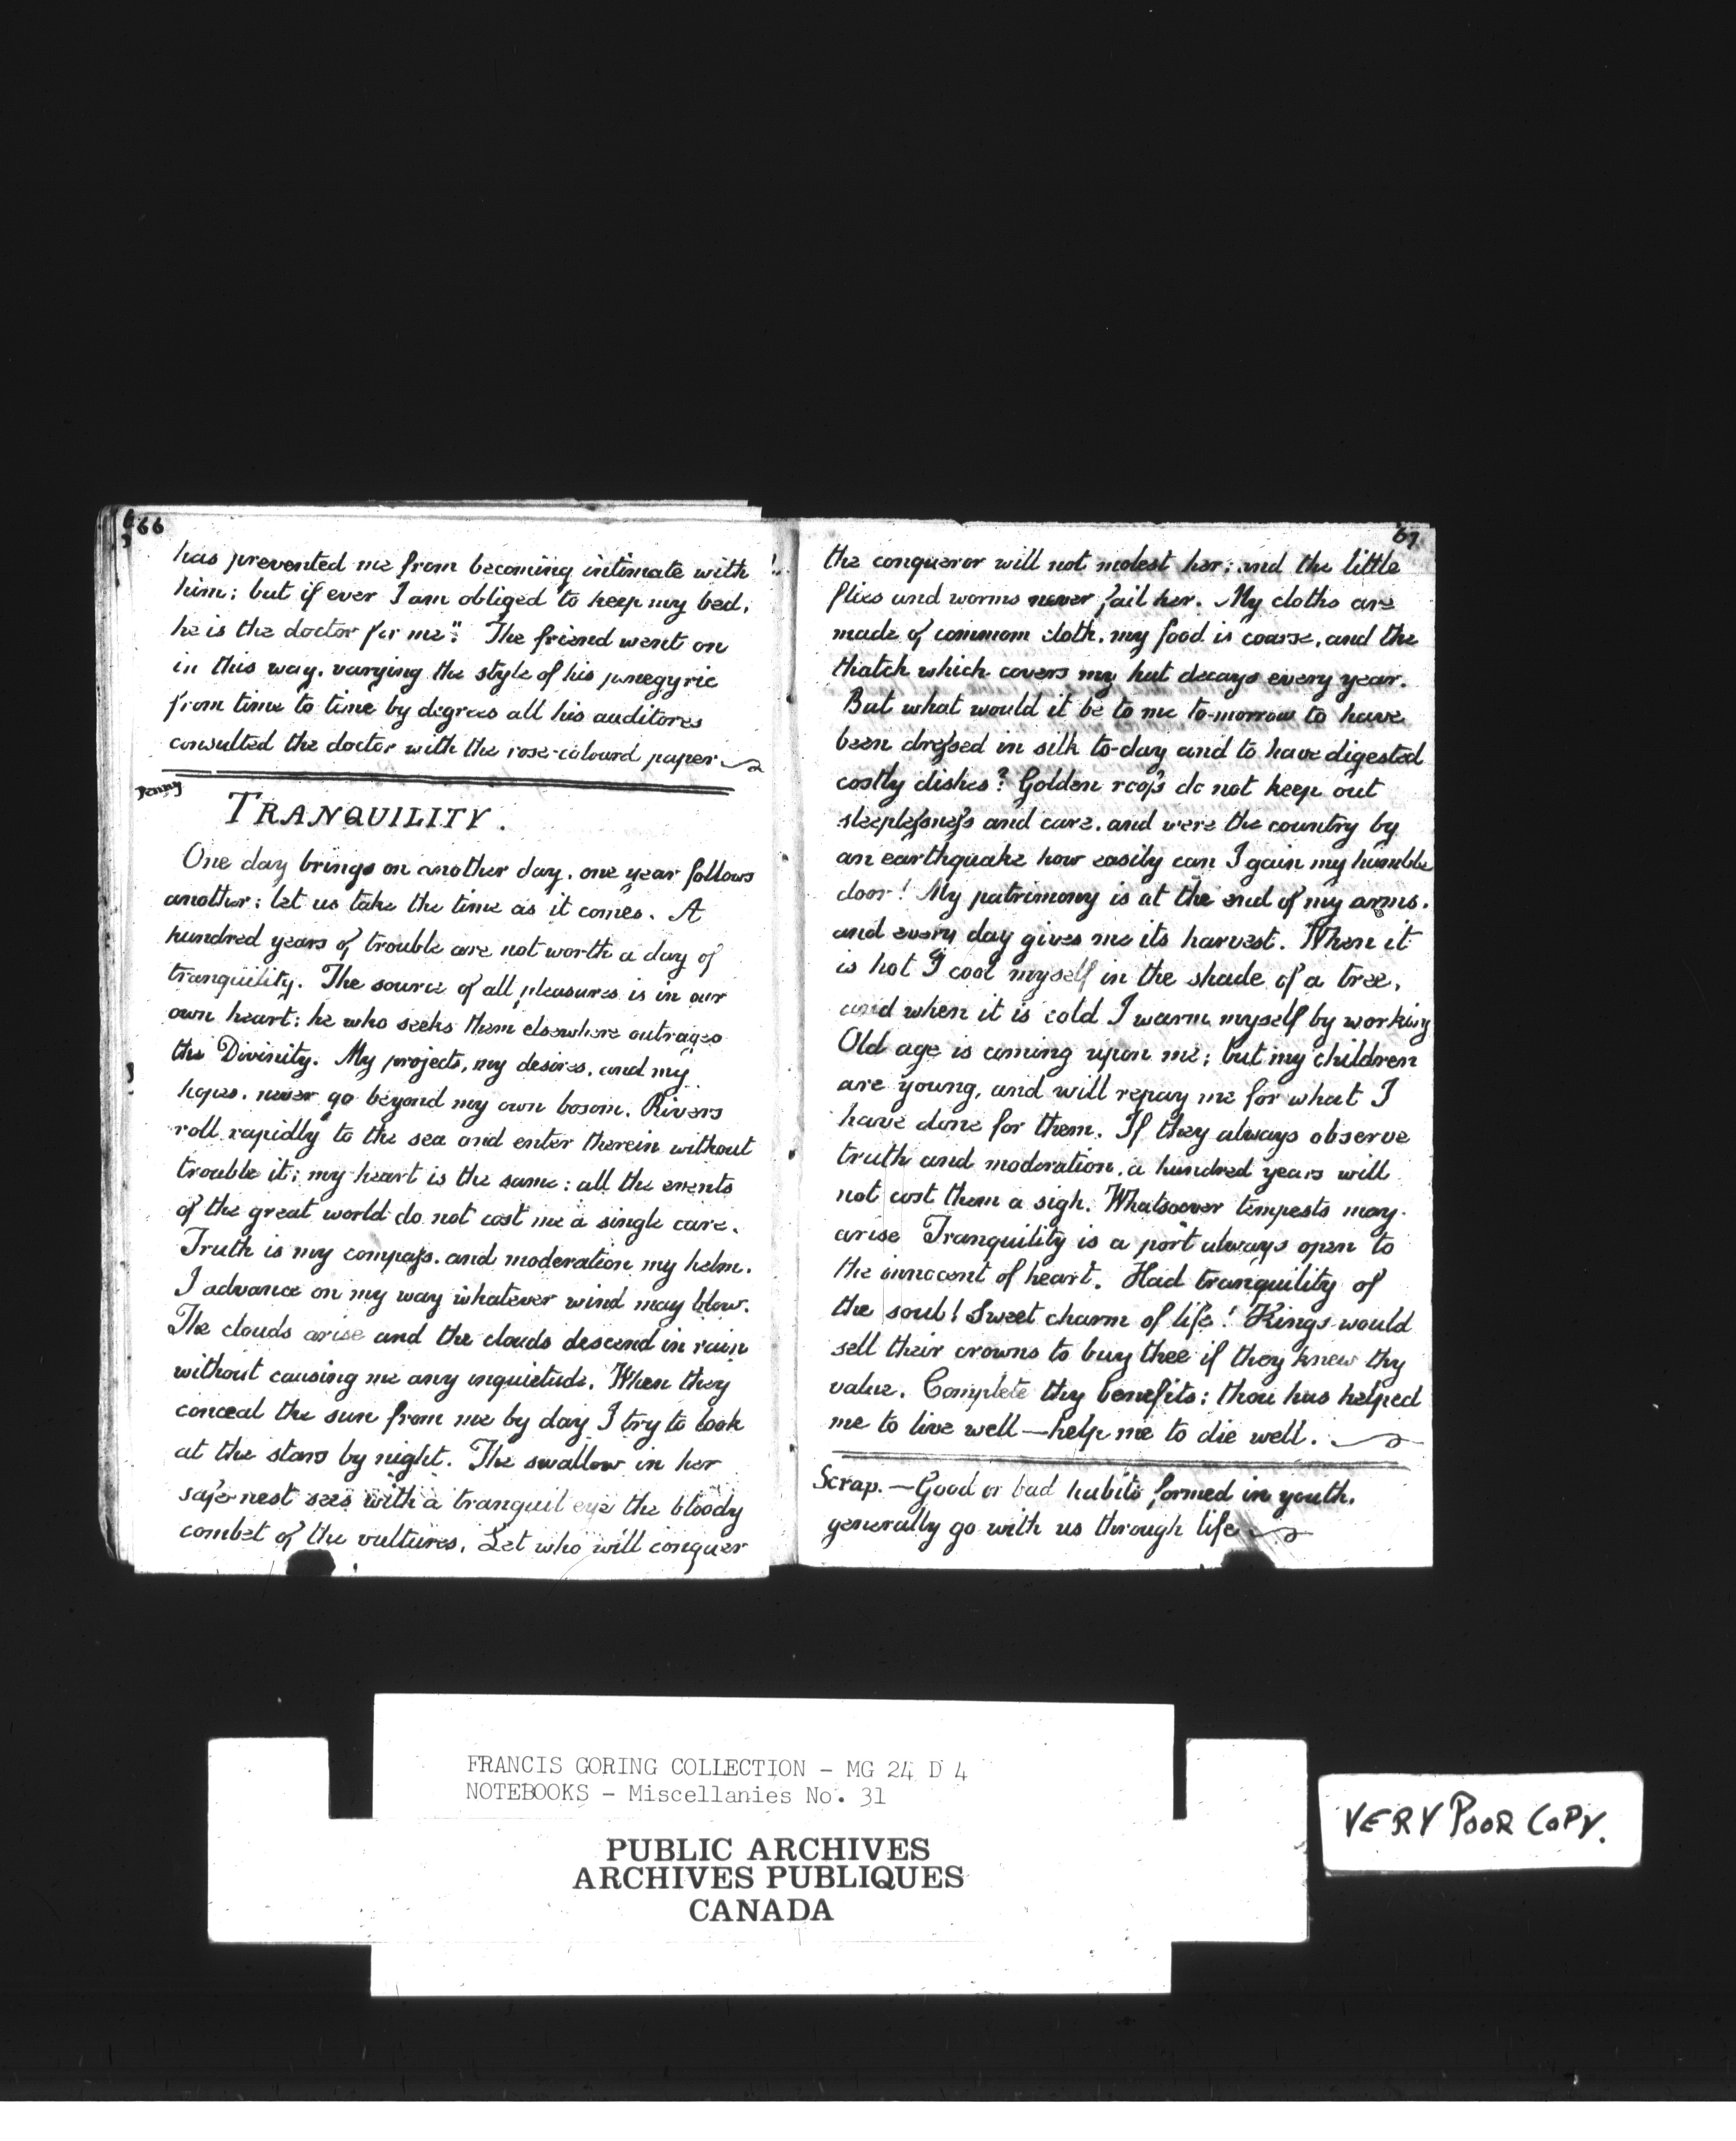 66
has prevented me from becoming intimate with
him; but if ever I am obliged to keep my bed,
he is the doctor for me". The friend went on
in this way, varying the style of his panegyric
from time to time by degrees all his auditores
consulted the doctor with the rose-colourd paper
Penny
TRANQUILITY.
One day brings on another day, one year follows
another; let us take the time as it comes. A
hundred years of trouble are not worth a day of
tranquility. The source of all pleasures is in our
own heart; he who seeks them elsewhere outrages
the Divinity. My projects, my desires, and my
hopes, never go beyond my own bosom. Rivers
roll rapidly to the sea and enter therein without
trouble it; my heart is the same: all the events
of the great world do not cost me a single care.
Truth is my compass, and moderation my helm.
I advance on my way whatever wind may blow.
The clouds arise and the clouds descend in rain
without causing me any inquietude. When they
conceal the sun from me by day I try to look
at the stars by night. The swallow in her
safe nest sees with a tranquil eye the bloody
combet of the vultures. Let who will conquer
67
the conqueror will not molest her; and the little
flies and worms never fail her. My cloths are
made of commom cloth, my food is coarse, and the
thatch which covers my hut decays every year.
But what would it be to me to-morrow to have
been dressed in silk to-day and to have digested
costly dishes? Golden roofs do not keep out
sleeplessness and care, and were the country by
an earthquake how easily can I gain my humble
door! My patrimony is at the end of my arms,
and every day gives me its harvest. When it
is hot I cool myself in the shade of a tree,
and when it is cold I warm myself by working
Old age is coming upon me; but my children
are young, and will repay me for what I
have done for them. If they always observe
truth and moderation, a hundred years will
not cost them a sigh. Whatsoever tempests may
arise Tranquility is a port always open to
the innocent of heart. Had tranquility of
the soul! Sweet charm of life! Kings would
sell their crowns to buy thee if they knew thy
value. Complete thy benefits; thou has helped
me to live well—help me to die well.
Scrap.—Good or bad habits formed in youth,
generally go with us through life
FRANCIS GORING COLLECTION - MG 24 D 4
NOTEBOOKS - Miscellanies No. 31
PUBLIC ARCHIVES
ARCHIVES PUBLIQUES
CANADA
VERY POOR COPY.